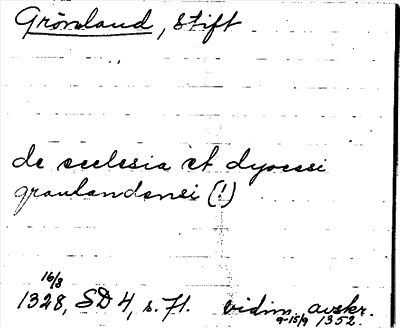 Grönland, Stift
de ecclesia et dyocesi
graulandensi (!)
16/8
1328, SD 4, s. 71. vidim. avskr.
9-15/9 1352.